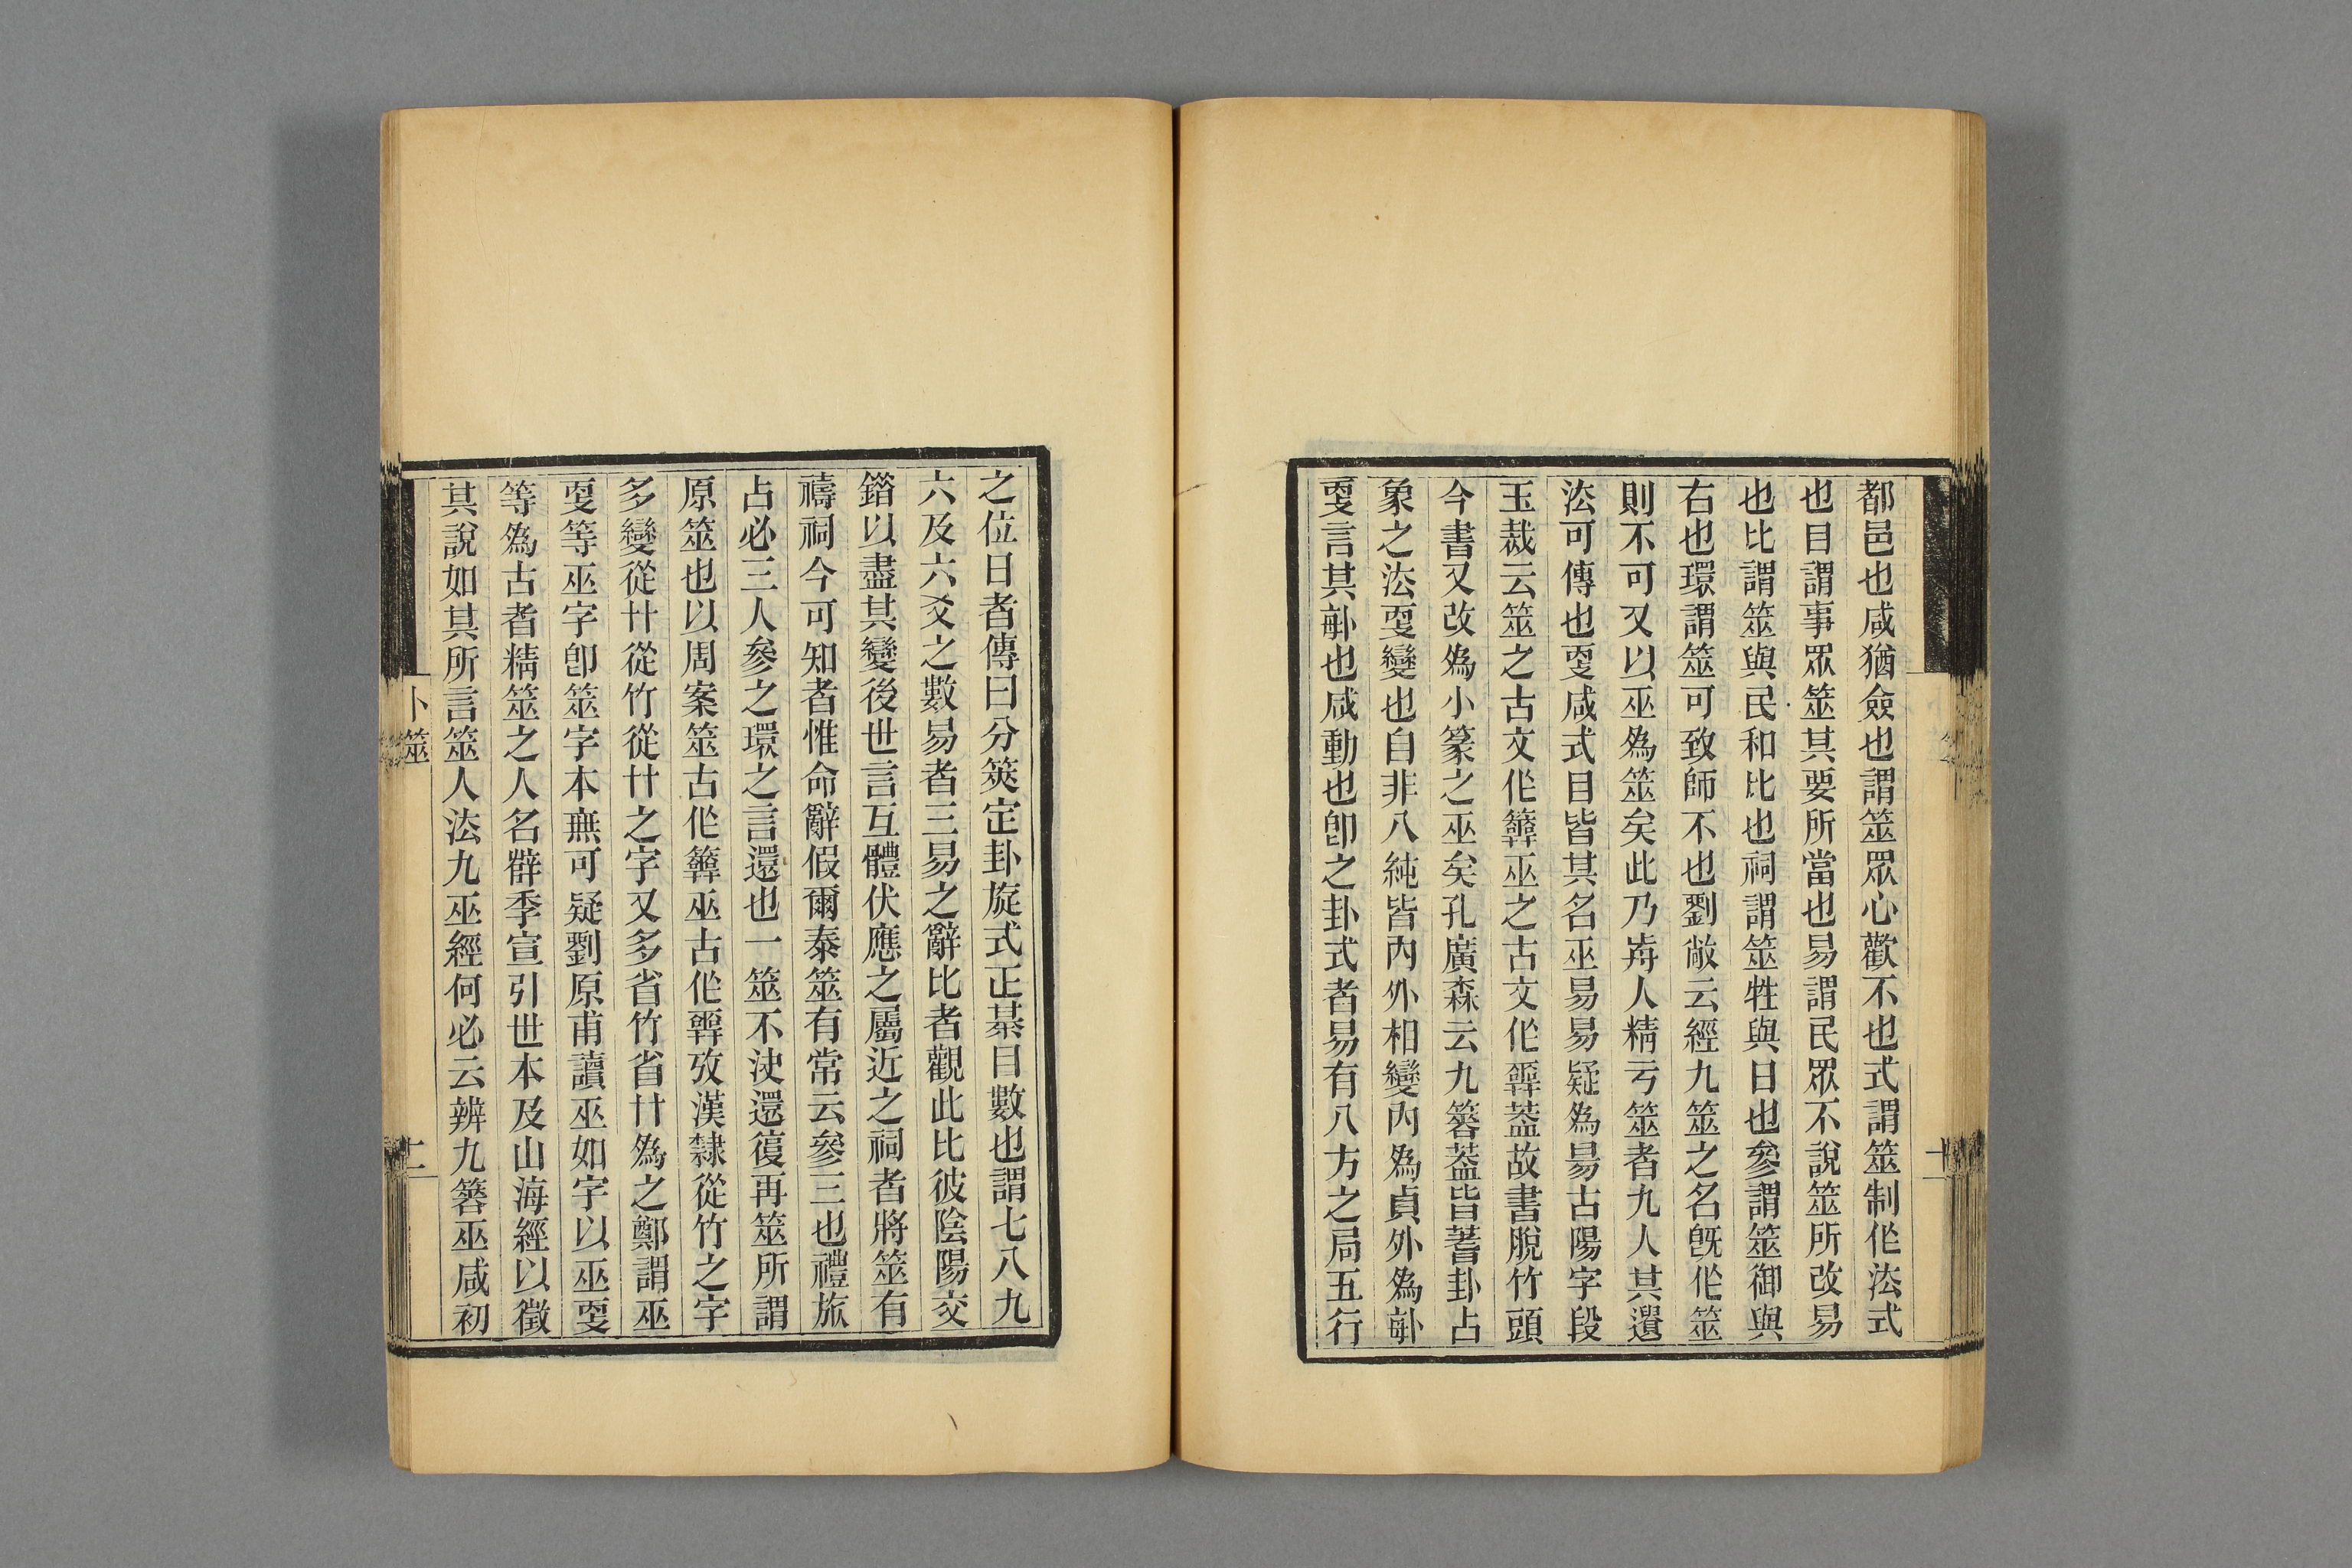 都邑也咸猶僉也謂筮眾心歡不也式謂筮制作法式
也目謂事眾筮其要所當也易謂民眾不說筮所改易
也比謂筮與民和比也祠謂筮牲與日也參謂筮御與
右也環謂筮可致師不也劉敞云經九筮之名旣作筮
則不可又以巫爲筮矣此乃歬人精亏筮者九人其遺
法可傳也㪅咸式目皆其名巫易易疑爲昜古陽字段
玉裁云筮之古文作𥷮巫之古文作𢍮葢故書脫竹頭
今書又改爲小篆之巫矣孔廣森云九簭葢皆蓍卦占
象之法㪅變也自非八純皆內外相變內爲貞外爲𠧩
㪅言其𠧩也咸動也卽之卦式者易有八方之局五行
之位日者傳曰分筴定卦旋式正棊目數也謂七八九
六及六爻之數易者三易之辭比者觀此比彼陰陽交
錯以盡其變後世言互體伏應之屬近之祠者將筮有
禱祠今可知者惟命辭假爾泰筮有常云參三也禮旅
占必三人參之環之言還也一筮不決還復再筮所謂
原筮也以周案筮古作𥷮巫古作𢍮攷漢隸從竹之字
多變從廾從竹從廾之字又多省竹省廾爲之鄭謂巫
㪅等巫字卽筮字本無可疑劉原甫讀巫如字以巫㪅
等爲古者精筮之人名辥季宣引世本及山海經以徵
其說如其所言筮人法九巫經何必云辨九簭巫咸初
卜筮